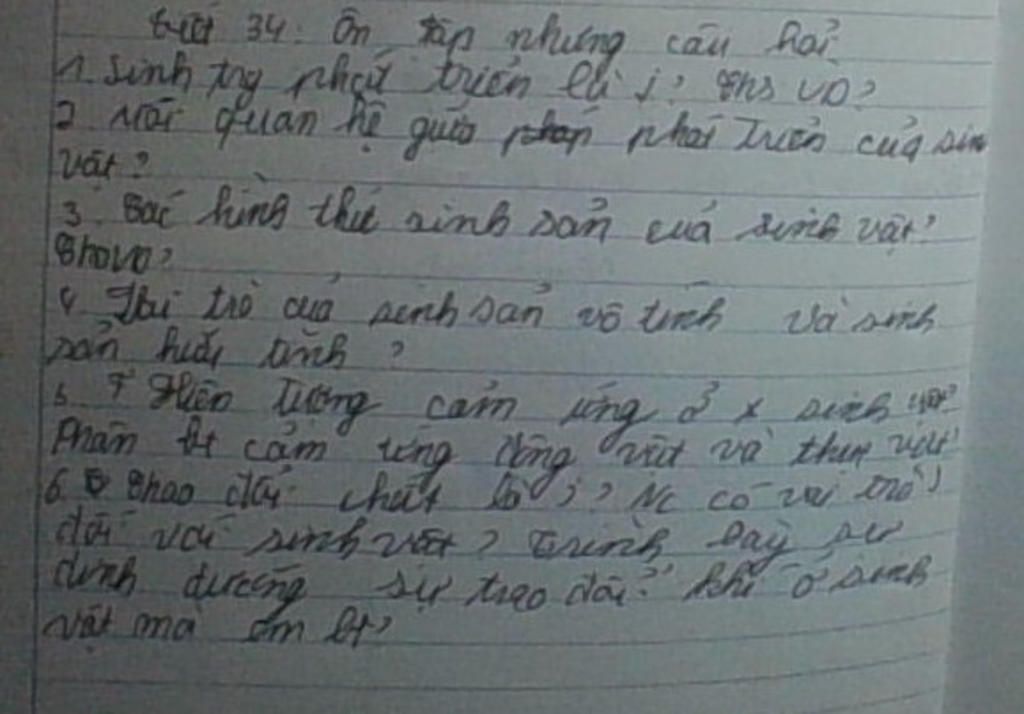 34: Ôn tập nhưng câu hỏi
1. Sinh trg phát triển là j? VD?
2. Mối quan hệ giữa phát triển của sin
vật?
3. Các hình thức sinh sản của sinh vật?
Cho VD?
4. Vai trò của sinh sản vô tính và sinh
sản hữu tính?
5. Hiện tượng cảm ứng ở sinh vật?
Phân bt cảm ứng động vật và thực vật?
6. Trao đổi chất là j? Nc có vai trò
đối với sinh vật? Trình bày sự
dinh dưỡng sự trao đổi khí ở sinh
vật mà em bt?